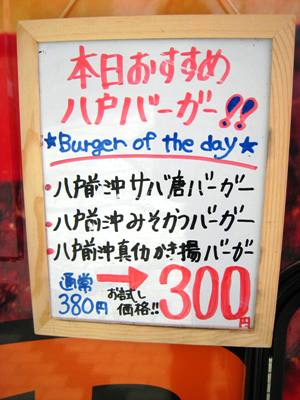 本日おすすめ
八戸バーガー!!
★Burger of the day★
八戸前沖サバ唐バーガー
八戸前沖みそかつバーガー
八戸前沖真イカかき揚バーガー
通常 380円 → お試し価格!! 300円